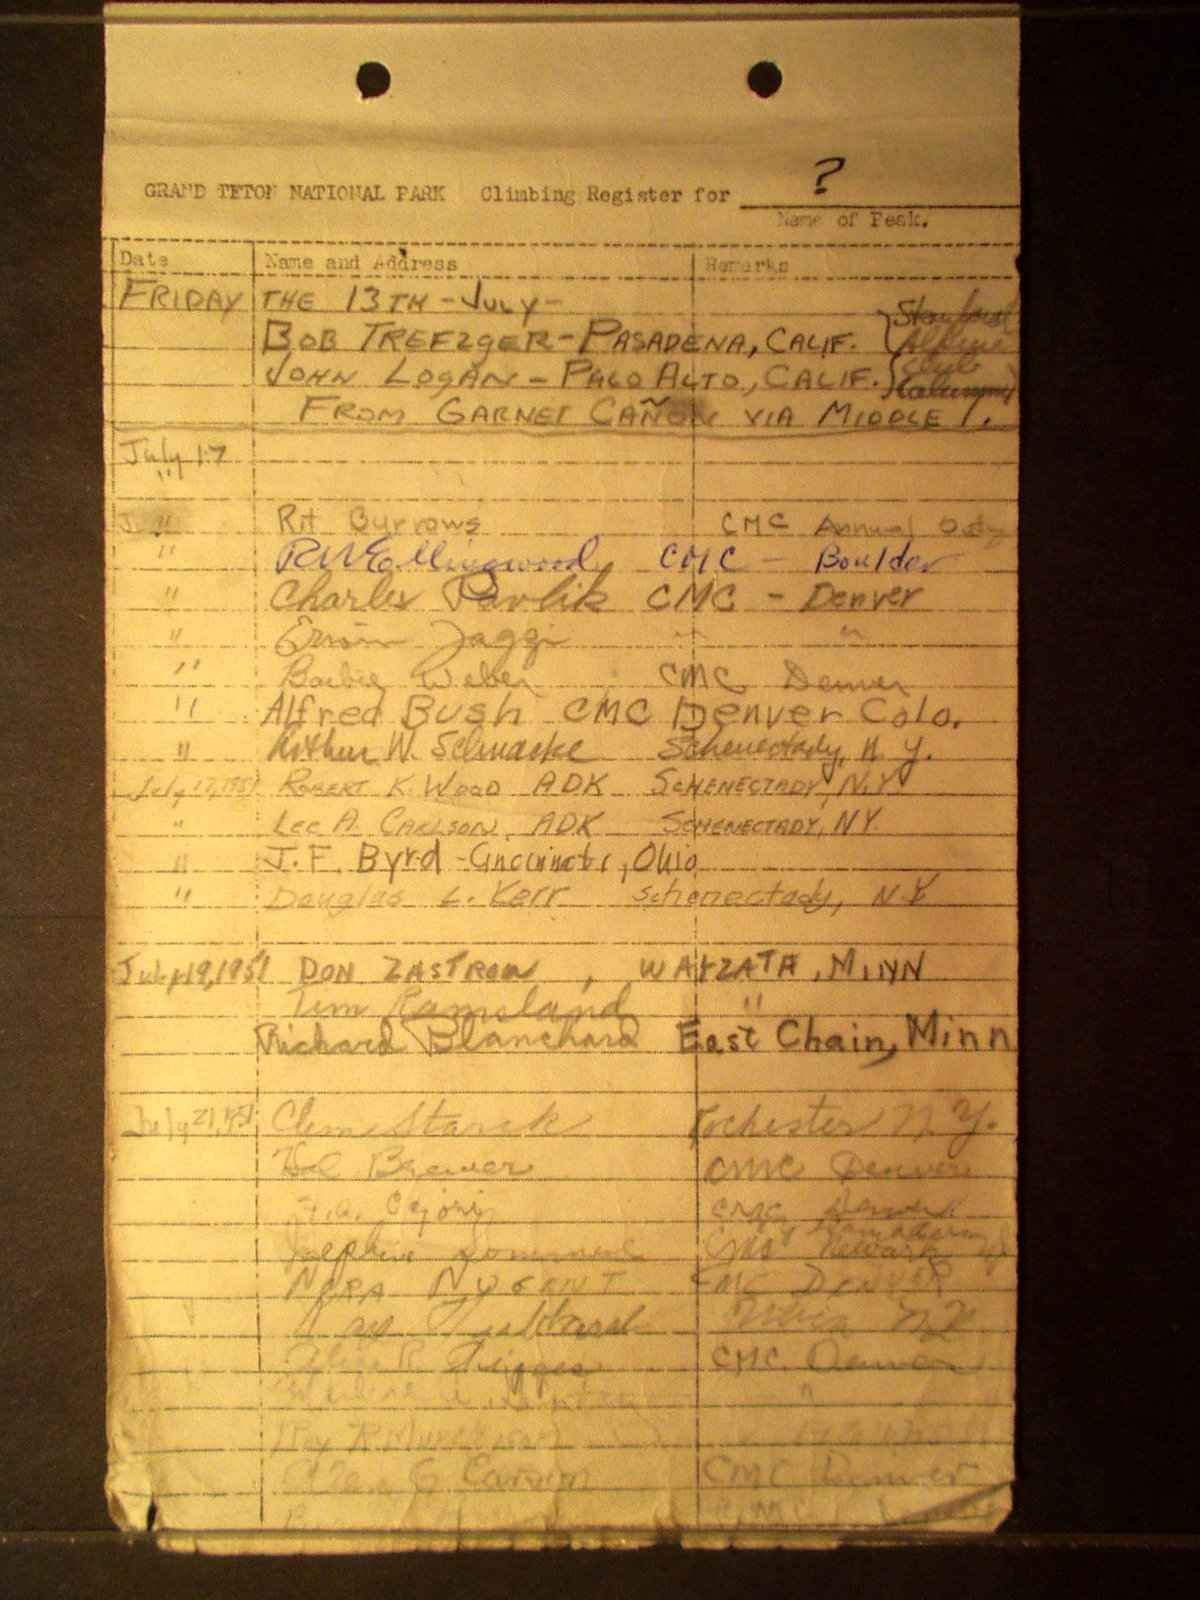 GRAND TETON NATIONAL PARK Climbing Register for ?
Name of Peak.
Date Name and Address Remarks
FRIDAY THE 13TH - JULY -
BOB TREFZGER - PASADENA, CALIF. } Stanford Alpine
JOHN LOGAN - PALO ALTO, CALIF. } Club
FROM GARNET CAÑON VIA MIDDLE T.
July 17
"
J. " Rit Burrows CMC Annual
" RW Ellingwood CMC - Boulder
" Charles Pavlik CMC - Denver
" Erwin Jaggi " "
" Weber CMC Denver
" Alfred Bush CMC Denver Colo.
" Arthur W. Schenectady, N.Y.
July 17, 1951 ROBERT K. WOOD ADK SCHENECTADY, N.Y.
" LEE A. CARLSON ADK SCHENECTADY, NY.
" J.F. Byrd - Cincinnati, Ohio
" Douglas L. Kerr Schenectady, N.Y
July 19, 1951 DON ZASTROW, WAYZATA, MINN
Tim Ramsland "
Richard Blanchard East Chain, Minn
July 21, '51 Clem Starck Rochester N.Y.
Brewer CMC Denver
F.A. CMC Denver
Josephine Newark
NORA NUGENT CMC DENVER
Hubbard N.Y.
R. CMC Denver
"
Roy R
G. Carson CMC Denver
CMC